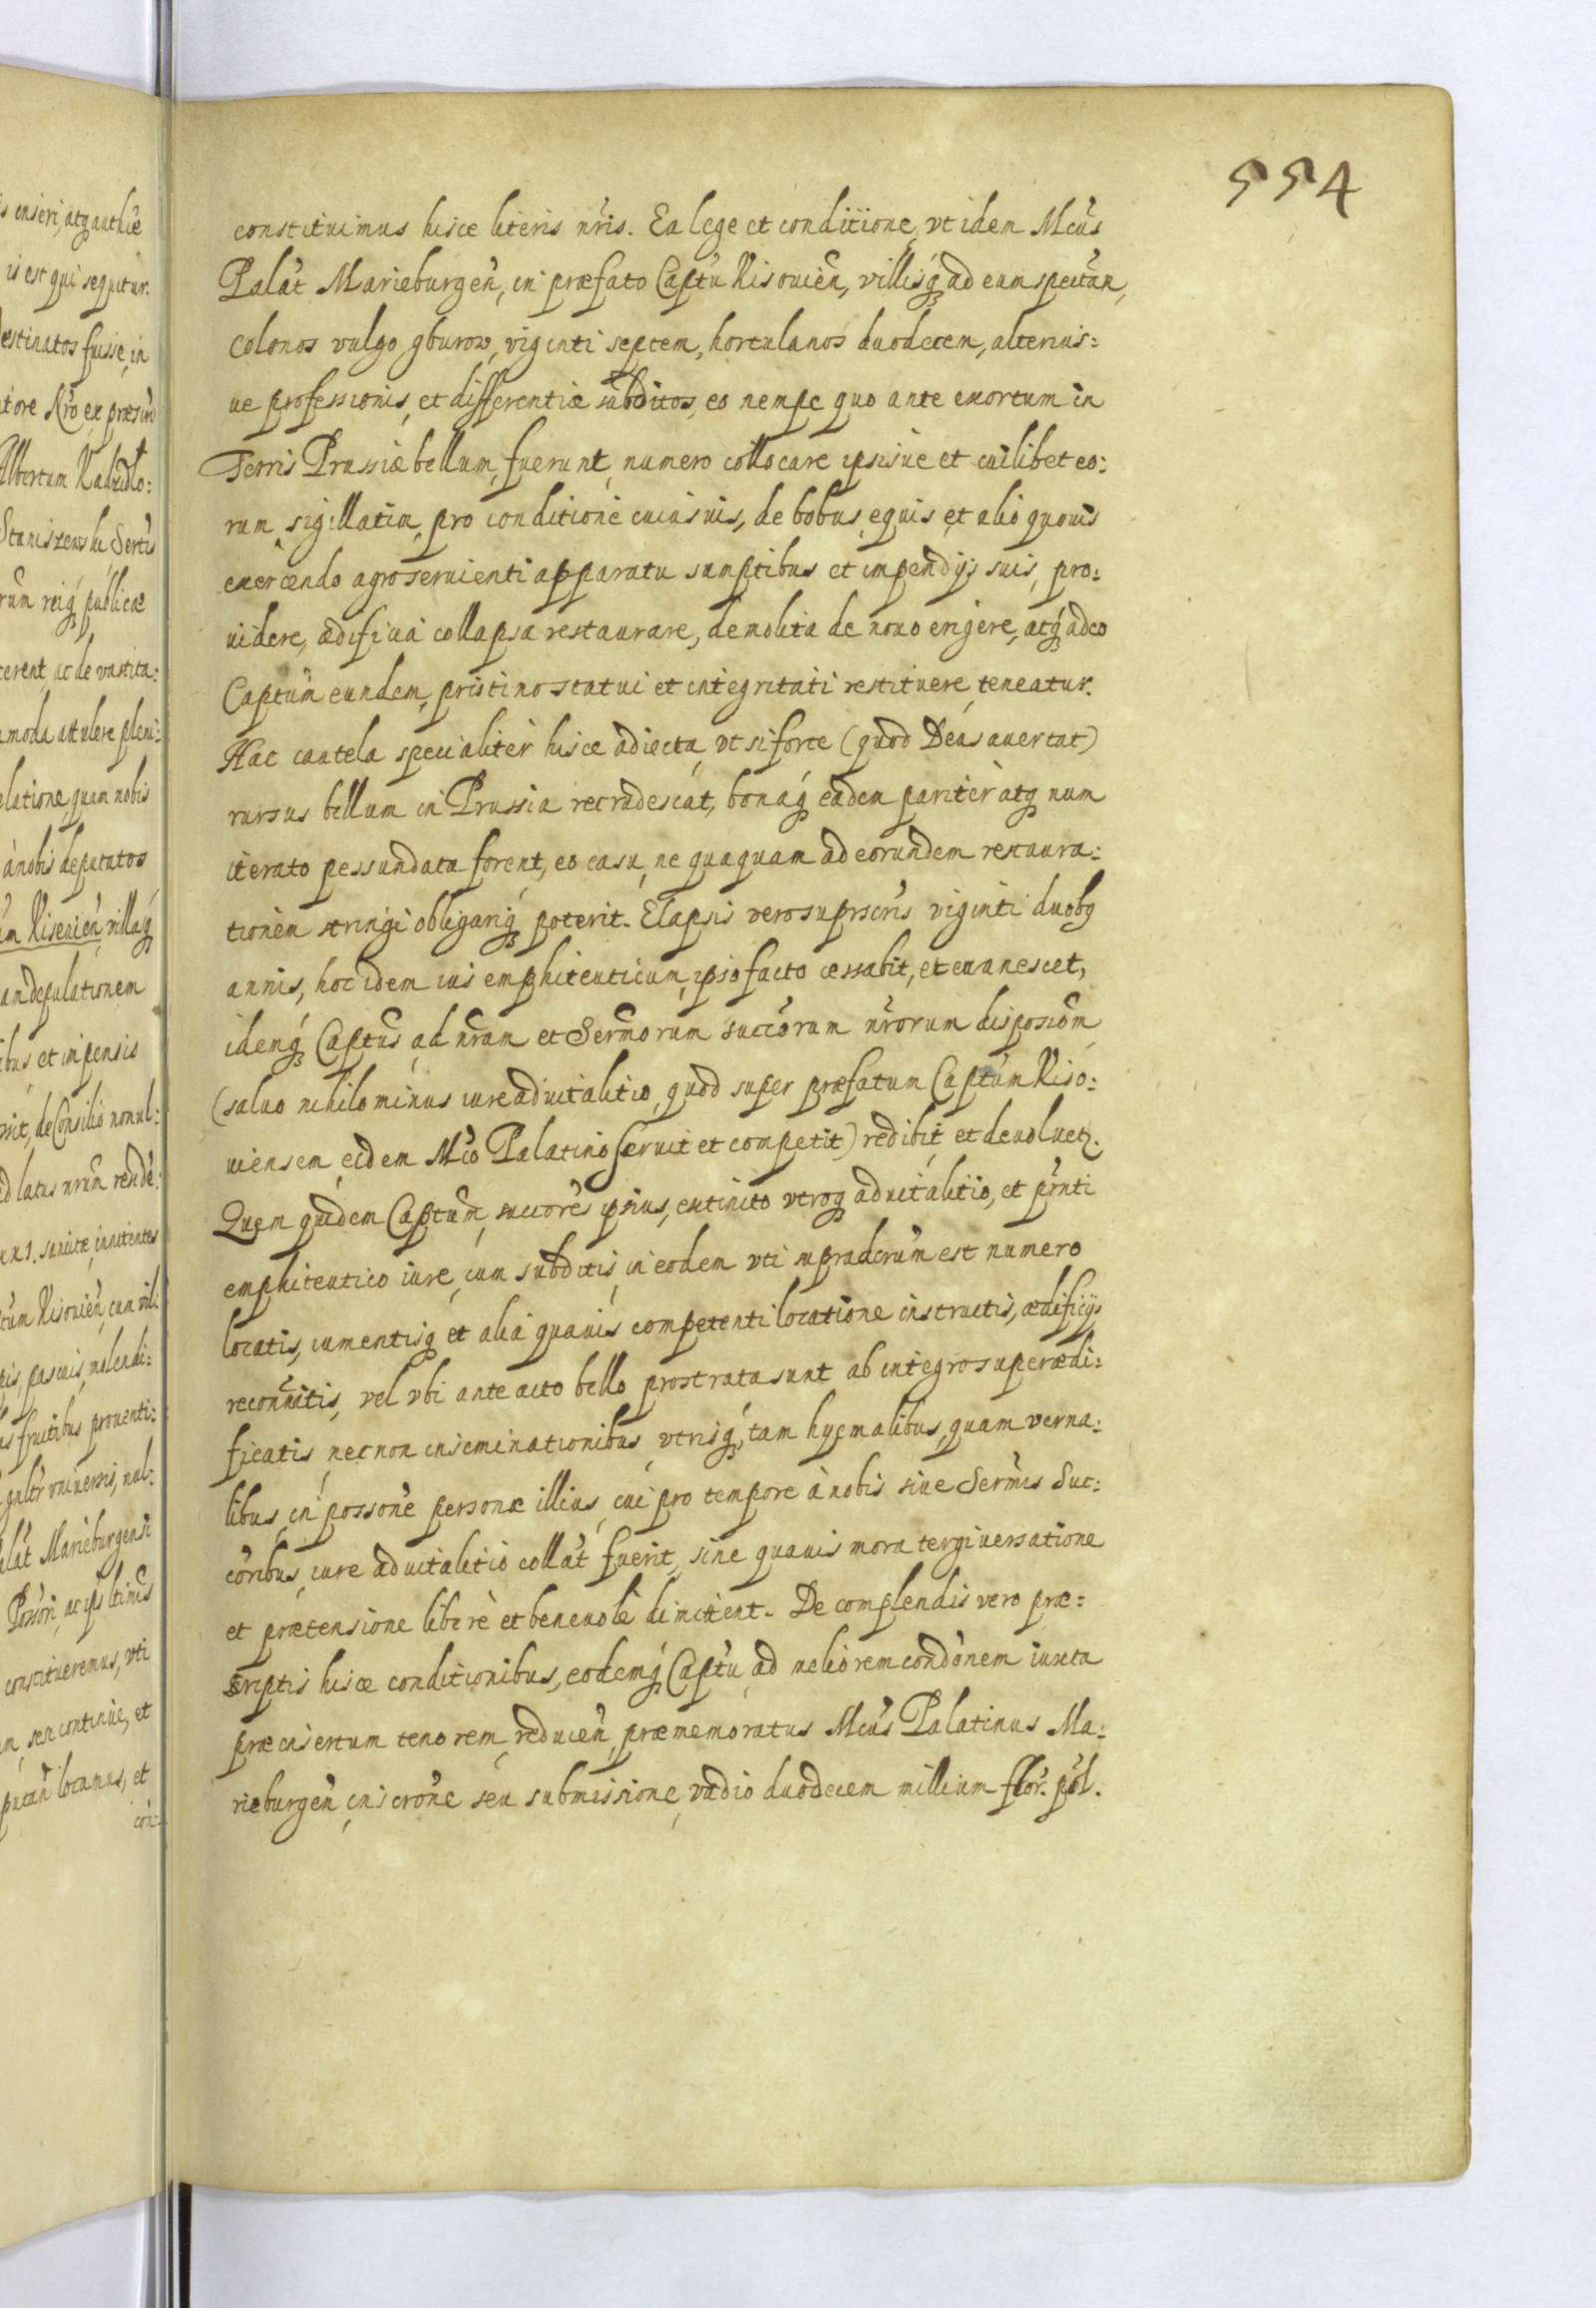 554
constituimus hisce literis nris. Ea lege et conditione, vt idem Mcus
Palat Marieburgen, in præfato Captu Kisouien, villisq ad eum spectan,
colonos vulgo gburow, viginti septem, hortulanos duodecem, alterius:
ue professionis et differentiæ subditos, eo nempe quo ante exortum in
Terris Prussiæ bellum, fuerunt numero collocare ipsisue et cuilibet eo:
rum sigillatim pro conditione cuiusuis, de bobus, equis et alio quouis
exercendo agro seruienti apparatu sumptibus et impendijs suis, pro:
uidere, ædificia collapsa restaurare, demolita de nouo erigere, atq adeo
Captum eundem, pristino statui et integritati restituere, teneatur.
Hac cautela specialiter hisce adiecta, vt si forte (quod Deus auertat)
rursus bellum in Prussia recrudescat, bonaq eadem pariter atq num
iterato pessundata forent, eo casu, ne quaquam ad eorundem restaura:
tionem stringi obligariq poterit. Elapsis vero suprscris viginti duobq
annis, hoc idem ius emphiteuticum, ipso facto cessabit, et euanescet,
idemq Captus ad nram et Sermorum succorum nrorum disposiom
(saluo nihilominus iure aduitalitio, quod super præfatum Captum Kiso:
uiensem eidem Mco Palatino seruit et competit) redibit et deuoluetz.
Quem quidem Captum, succores ipsius, extincto vtroq aduitalitio, et prnti
emphiteutico iure, cum subditis in eodem vti supradcrum est numero
locatis, iumentisq et alia quauis competenti locatione instructis, ædificijs
reconnatis, vel vbi ante acto bello prostrata sunt ab integro superædi:
ficatis necnon inseminationibus vtrisq, tam hyemalibus, quam verna:
libus in possone personæ illius, cui pro tempore à nobis siue Sermis Suc:
coribus iure aduitalitio collat fuerit, sine quauis mora tergiuersatione
et prætensione liberè et beneuolè dimittent. De complendis vero præ:
scriptis hisce conditionibus, eodemq Captu, ad meliorem condonem iuxta
præinsertum tenorem reducen, præmemoratus Mcus Palatinus Ma:
rieburgen inscrone seu submissione, vadio duodecem millium flor. pol.